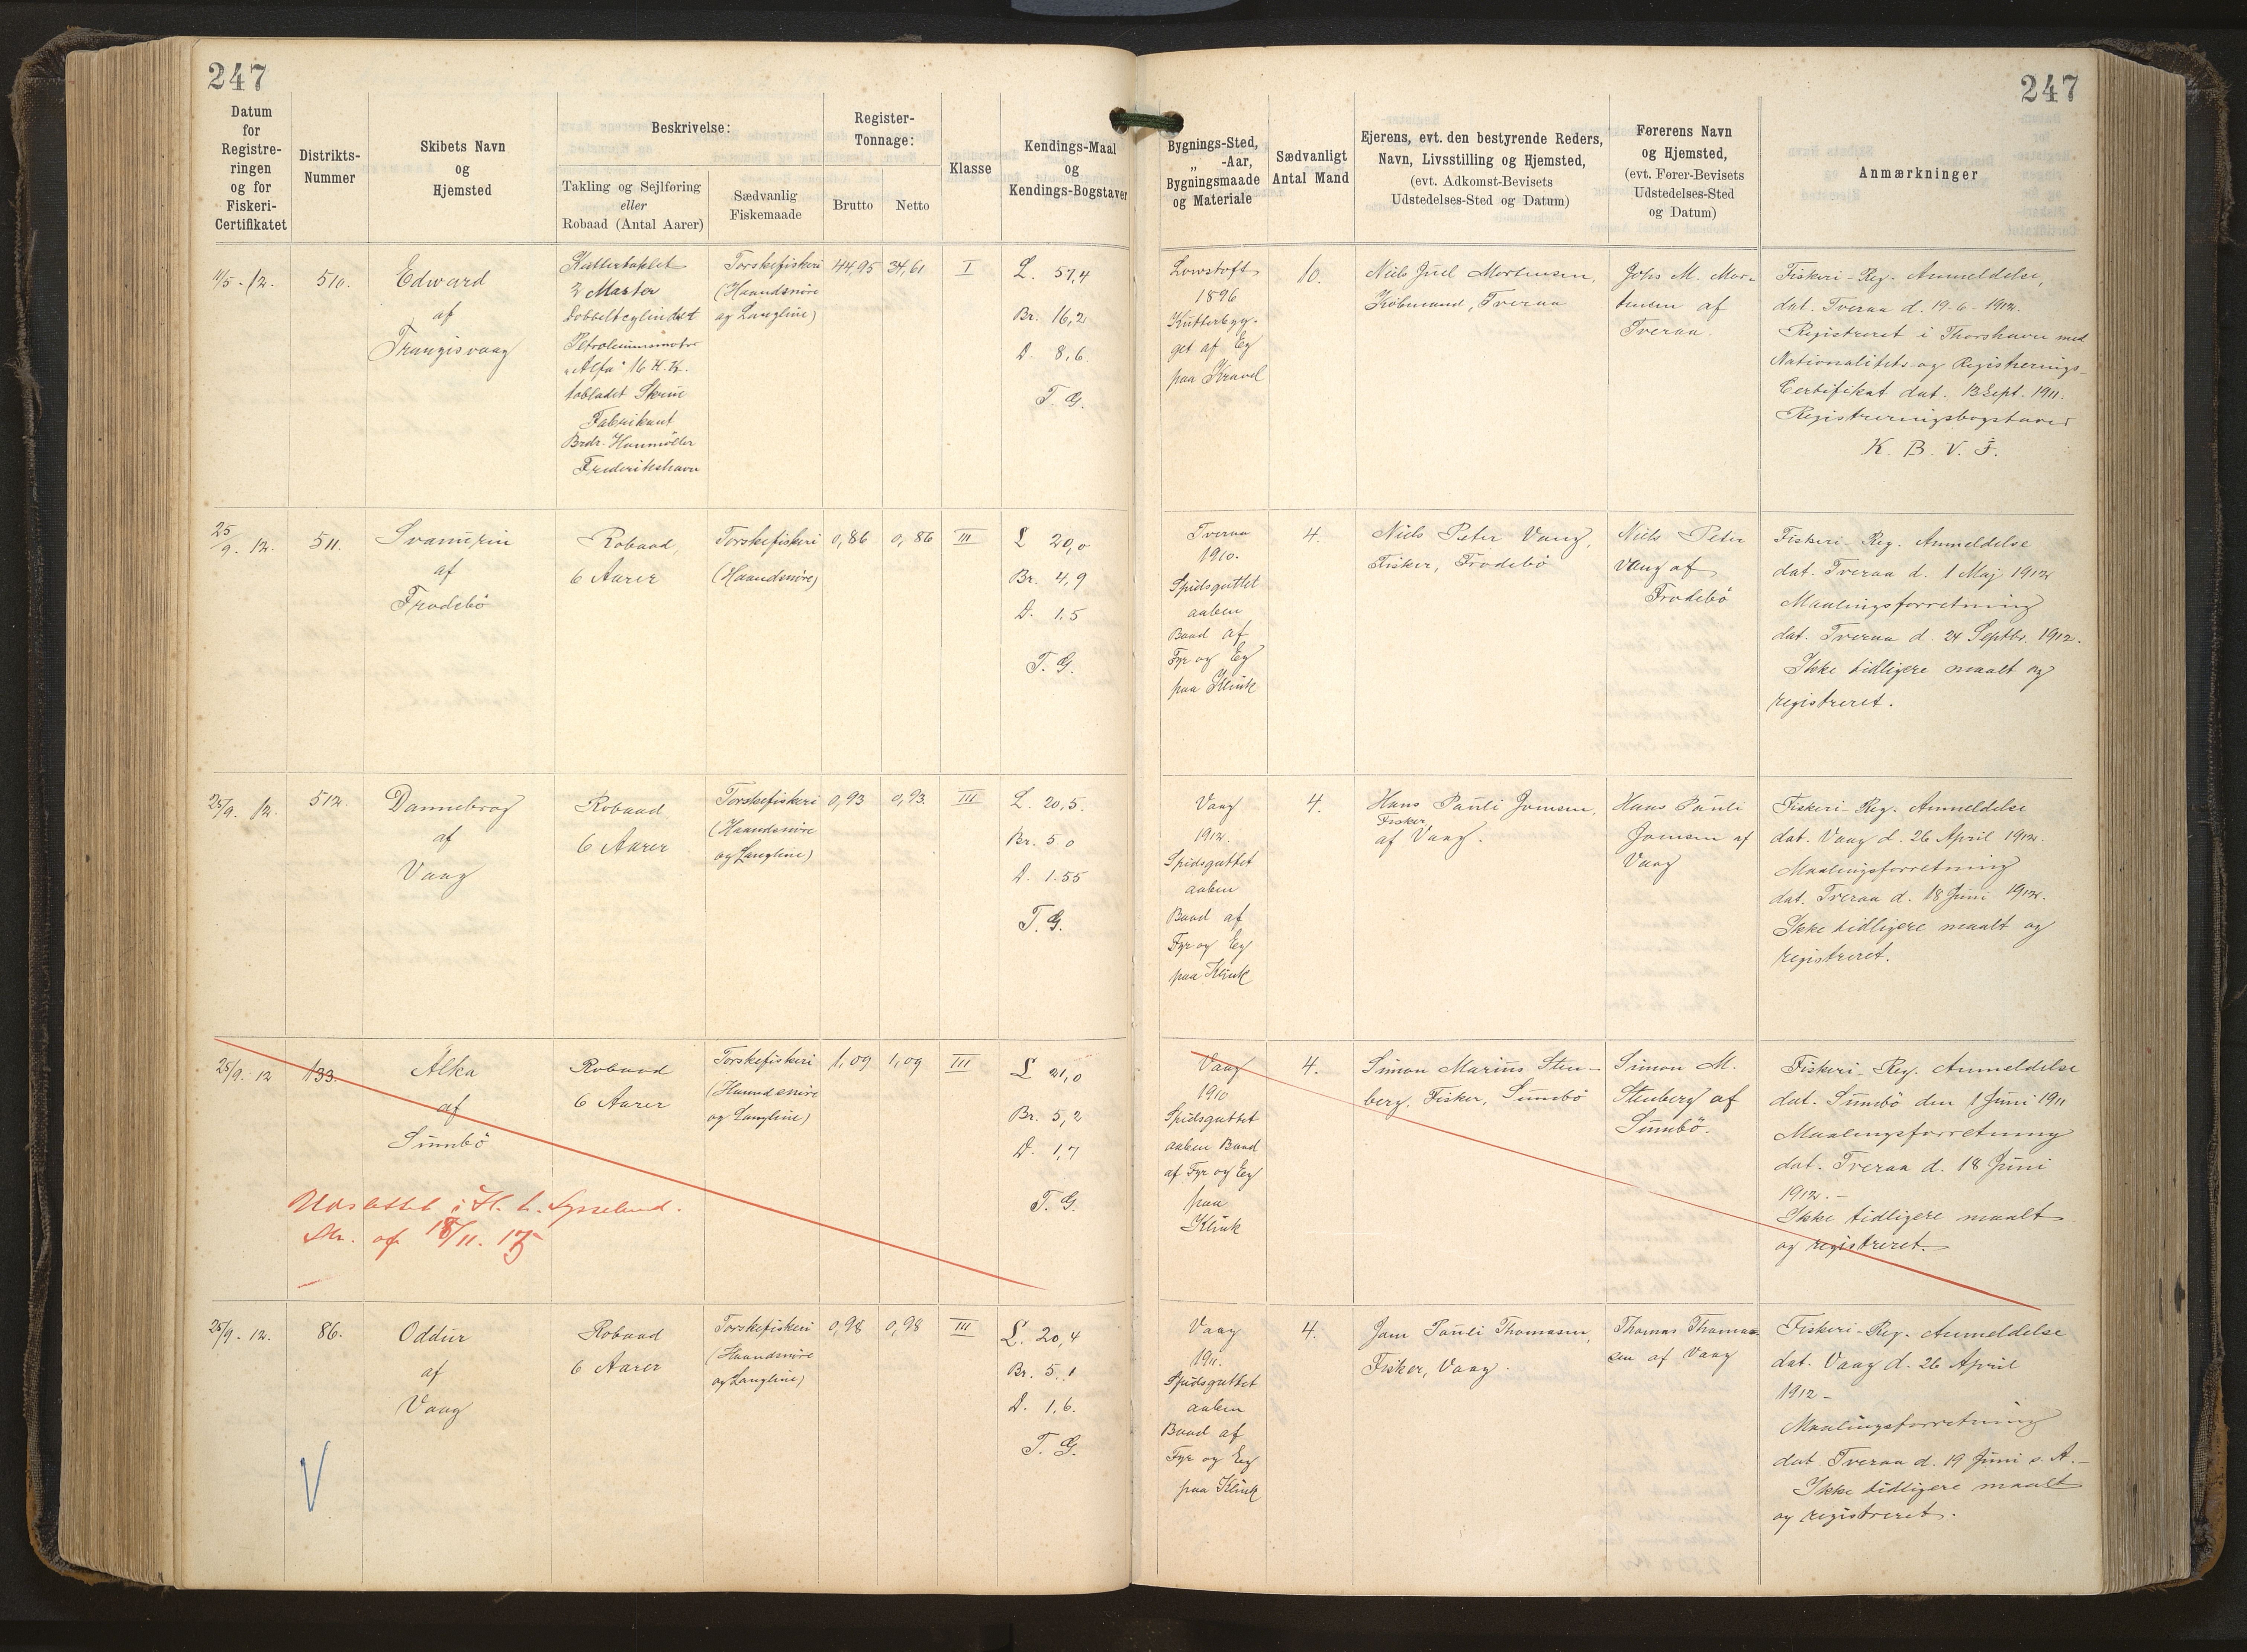 247
247
Datum
for
Registre-
ringen
og for
Fiskeri-
Certifikatet
Distrikts-
Nummer
Skibets Navn
og
Hjemsted
Beskrivelse:
Takling og Sejlføring
eller
Robaad (Antal Aarer)
Sædvanlig
Fiskemaade
Register-
Tonnage:
Brutto
Netto
Klasse
Kendings-Maal
og
Kendings-Bogstaver
Bygnings-Sted,
„ -Aar,
Bygningsmaade
og Materiale
Sædvanligt
Antal Mand
Ejerens, evt. den bestyrende Reders,
Navn, Livsstilling og Hjemsted,
(evt. Adkomst-Bevisets
Udstedelses-Sted og Datum)
Førerens Navn
og Hjemsted,
(evt. Fører-Bevisets
Udstedelses-Sted
og Datum)
Anmærkninger
11/5 - 12.
510.
Edward
af
Trangisvaag
Kuttertaklet
2 Master
Dobbeltcylindret
Petroleumsmotor
"Alfa" 16 H.K.
tobladet Skrue
Fabrikant
Brdr. Houmöller
Frederikshavn
Torskefiskeri
(Haandsnøre
og Langline)
44,95
34,61
I
L. 57,4
Br. 16,2
D. 8,6.
T. G.
Lowstoft
1896
Kutterbyg-
get af Eg
paa Kravel
10.
Niels Juel Mortensen,
Købmand, Tveraa
Johs M. Mor-
tensen af
Tveraa.
Fiskeri-Reg. Anmeldelse,
dat. Tveraa d. 19-6-1912.
Registreret i Thorshavn med
Nationalitets-og Registrerings-
Certifikat dat. 13 Sept. 1911.
Registreringsbogstaver
K. B. V. F.
25/9. 12.
511.
af
Frodebö
Robaad,
6 Aarer
Torskefiskeri
(Haandsnøre)
0,86
0,86
III
L 20,0
Br. 4,9
D. 1,5
T. G.
Tveraa
1910.
Spidsgattet
aaben
Baad af
Fyr og Eg
paa Klink
4.
Niels Peter Vang,
Fisker, Frodebö
Niels Peter
Vang af
Frodebö
Fiskeri-Reg. Anmeldelse
dat. Tveraa d. 1 Maj 1912
Maalingsforretning
dat. Tveraa d. 24 Septbr. 1912.
Ikke tidligere maalt og
registreret.
25/9. 12.
512.
Dannebrog
af
Vaag
Robaad
6 Aarer
Torskefiskeri
(Haandsnøre
og Langline)
0,93
0,93.
III
L. 20,5.
Br. 5 0
D. 1.55
T. G.
Vaag
1912.
Spidsgattet
aaben
Baad af
Fyr og Eg
paa Klink
4.
Hans Pauli Joensen,
Fisker,
af Vaag.
Hans Pauli
Joensen af
Vaag
Fiskeri-Reg. Anmeldelse
dat. Vaag d. 26 April 1912.
Maalingsforretning
dat. Tveraa d. 18 Juni 1912.
Ikke tidligere maalt og
registreret.
25/9. 12
133.
Alka
af
Sumbö
Robaad
6 Aarer
Torskefiskeri
(Haandsnøre
og Langline)
1,09
1,09
III
L 21,0
Br. 5,2
D. 1,7
T. G.
Udslettet i H. t.
af 18/11. 15
Vaag
1910
Spidsgattet
aaben Baad
af Fyr og Eg
paa
Klink
4.
Simon Marius Sten-
berg, Fisker, Sumbö
Simon M.
Stenberg af
Sumbö.
Fiskeri-Reg. Anmeldelse
dat. Sumbö den 1 Juni 1911
Maalingsforretning
dat. Tveraa d. 18 Juni
1912.-
Ikke tidligere maalt
og registreret.
25/9. 12.
86.
Oddur
af
Vaag
Robaad
6 Aarer
Torskefiskeri
(Haandsnøre
og Langline)
0,98
0,98
III
L. 20,4
Br. 5,1
D. 1,6.
T. G.
V
Vaag
1911.
Spidsgattet
aaben
Baad af
Fyr og Eg
paa Klink
4.
Joen Pauli Thomasen,
Fisker, Vaag.
Thomas Thomas-
sen af Vaag
Fiskeri-Reg. Anmeldelse
dat. Vaag d. 26 April
1912-
Maalingsforretning
dat Tveraa d. 19 Juni s. A.-
Ikke tidligere maalt
og registreret.